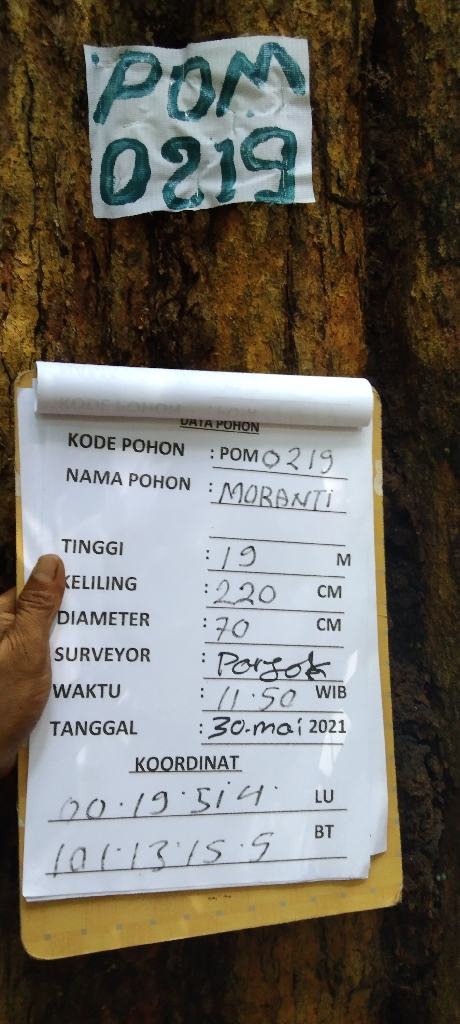 POM
0219
DATA POHON
KODE POHON : POM 0219
NAMA POHON : MORANTI
TINGGI : 19 M
KELILING : 220 CM
DIAMETER : 70 CM
SURVEYOR : Pargok
WAKTU : 11.50 WIB
TANGGAL : 30.mai 2021
KOORDINAT
00.19.51.4. LU
101.13.15.5 BT